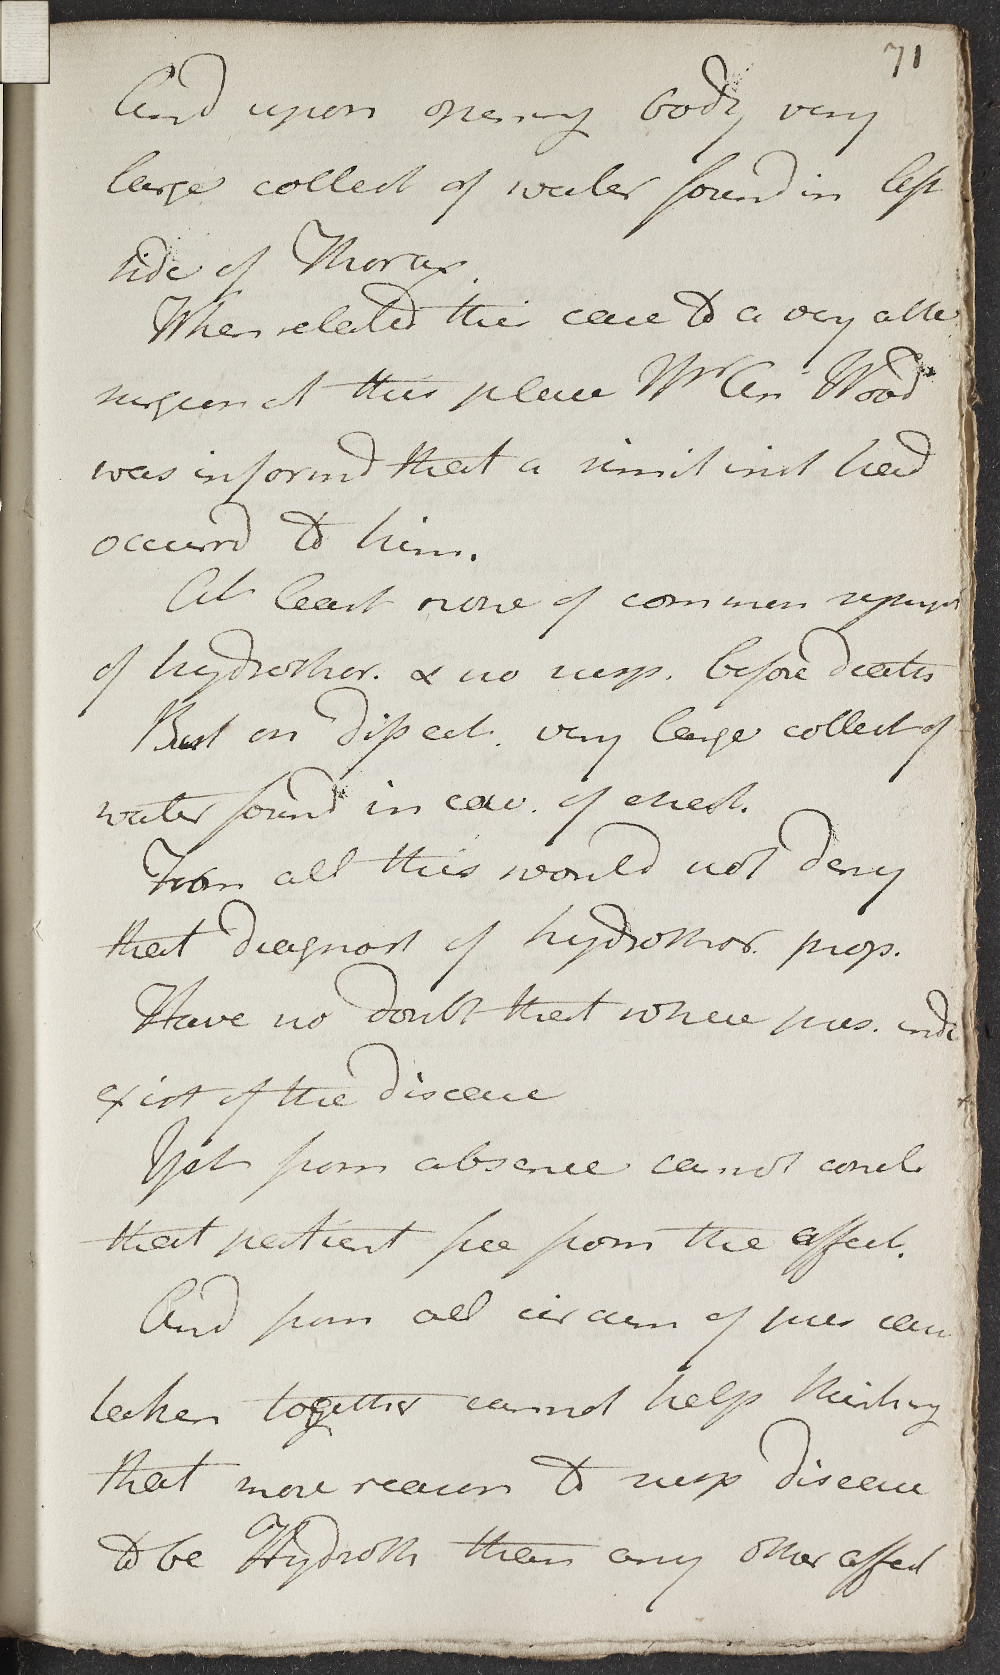 71
And upon opening body very
large collect of water found in left
side of Thorax.
When related this case to a very atten
surgeon at this place Mr An Wood
was informd that a simil inst had
occurrd to him.
At least none of common sympt
of hydrothor. & no susp. before death
But on dissect. very large collect of
water found in cav. of chest.
From all this would not deny
that diagnost of hydrothor. prop.
Have no doubt that where pres. indic
exist of the disease
Yet from absence cannot concl.
that patient free from the affect.
And from all circum of pres case
taken together cannot help thinking
that more reason to susp disease
to be Hydroth than any other affect